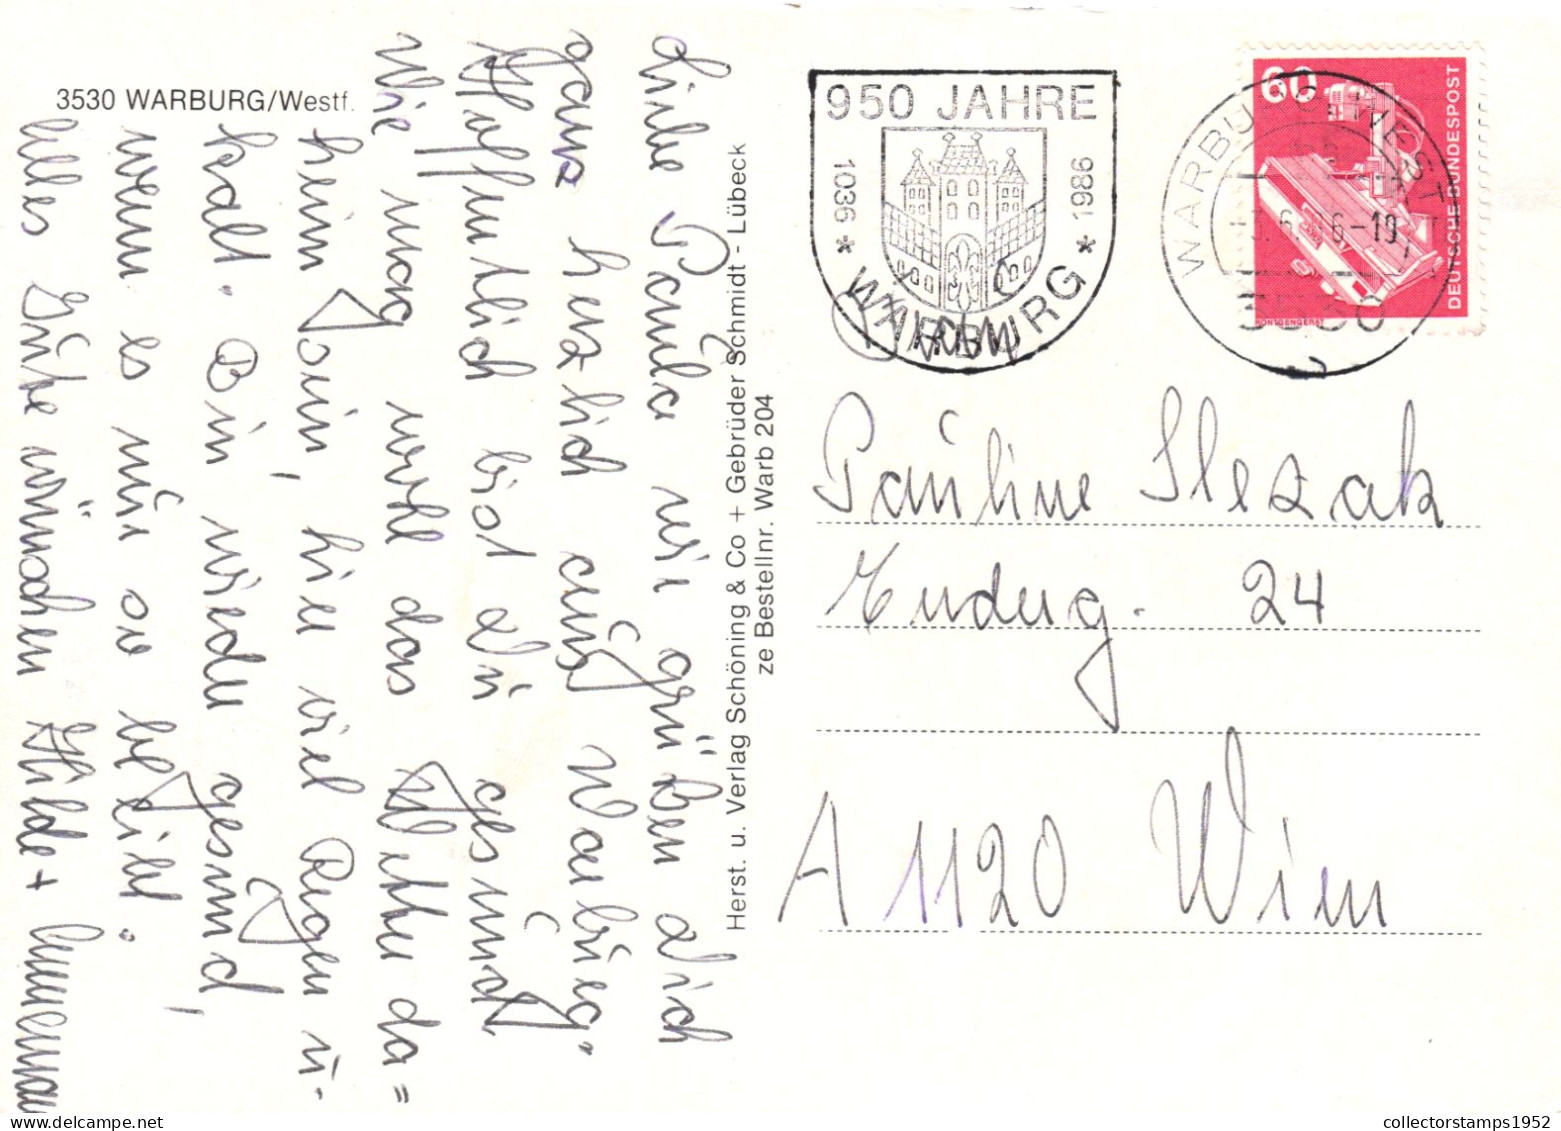 3530 WARBURG/Westf.
Liebe Paula wir grüßen dich
ganz herzlich aus Warburg.
Hoffentlich bist Du gesund,
Wie mag wohl das Wetter da=
heim sein, hier viel Regen u.
kalt. Bin wieder gesund,
wenn es nur so bleibt.
alles Gute wünschen Hilde +
Herst. u. Verlag Schöning & Co + Gebrüder Schmidt - Lübeck
ze Bestellnr. Warb 204
950 JAHRE
1036 * WARBURG * 1986
WARBURG, WESTF
-19
3530
60
DEUTSCHE BUNDESPOST
RÖNTGENGERÄT
Pauline Slezak
24
A 1120 Wien
collectorstamps1952